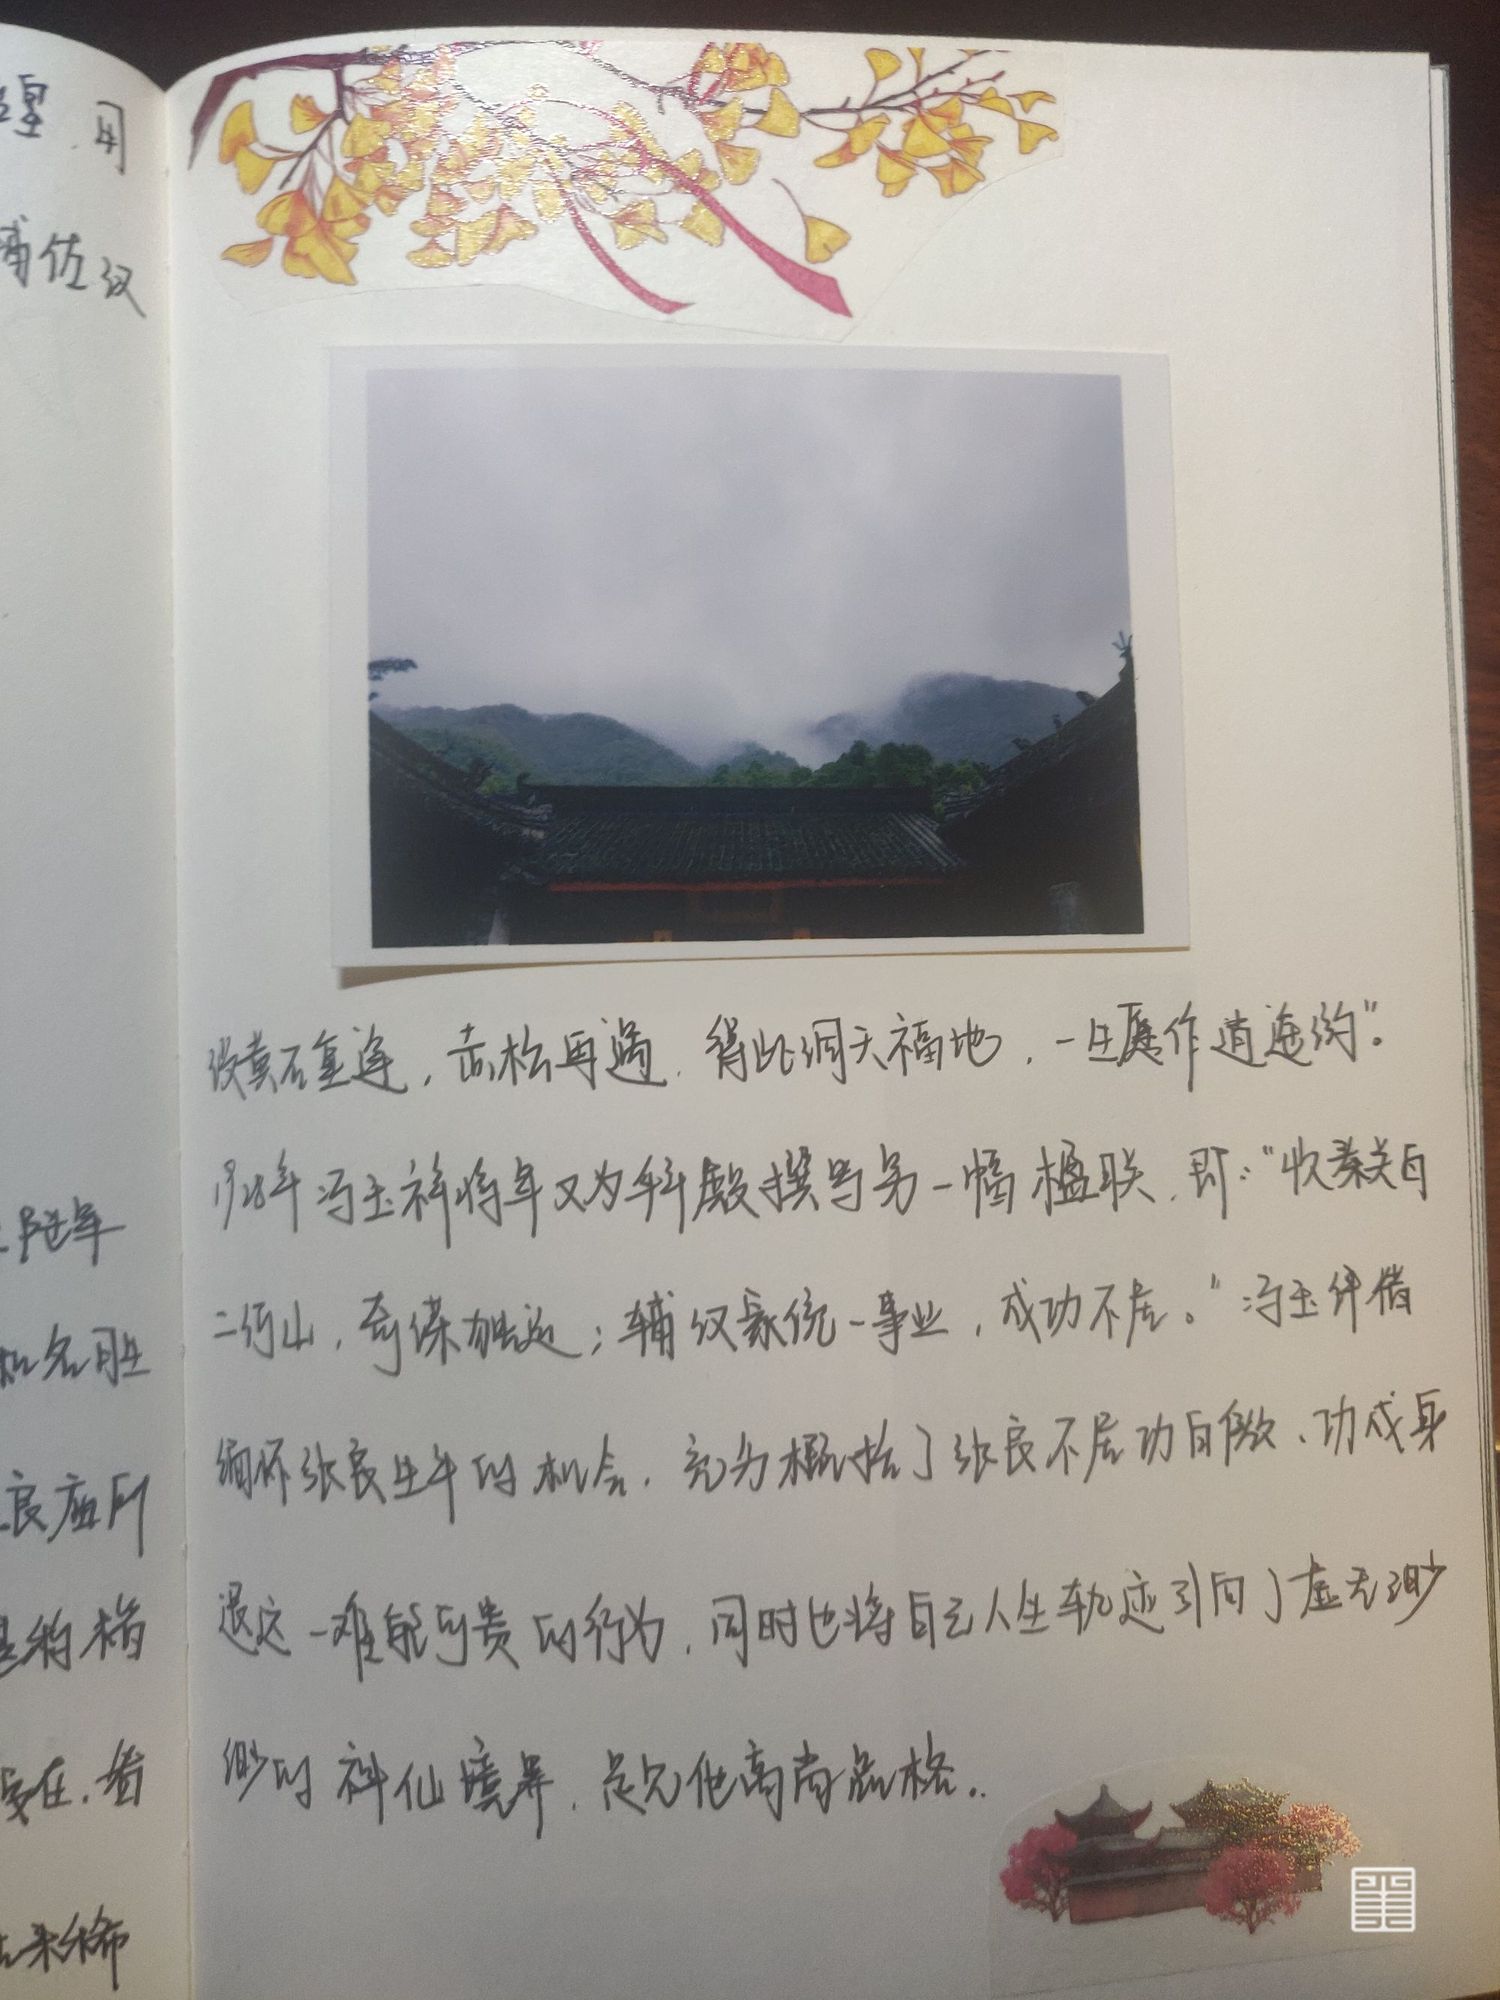 理,用
辅佐汉
设黄石重逢,赤松再遇,得此洞天福地,一生愿作逍遥游"。
1928年冯玉祥将军又为拜殿撰写另一幅楹联,即:"收秦关百
二河山,奇谋独运;辅汉家统一事业,成功不居。"冯玉祥借
缅怀张良生平的机会,充分概括了张良不居功自傲、功成身
退这一难能可贵的行为,同时也将自己人生轨迹引向了虚无缥
缈的神仙境界,足见他高尚品格..
陆军
名胜
良庙所
在,着
来稀